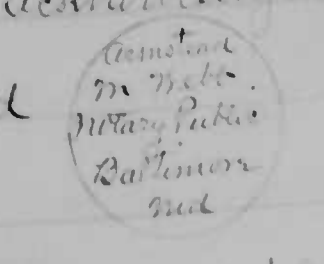 Armstead
M Webb.
Notary Public
Baltimore
Md